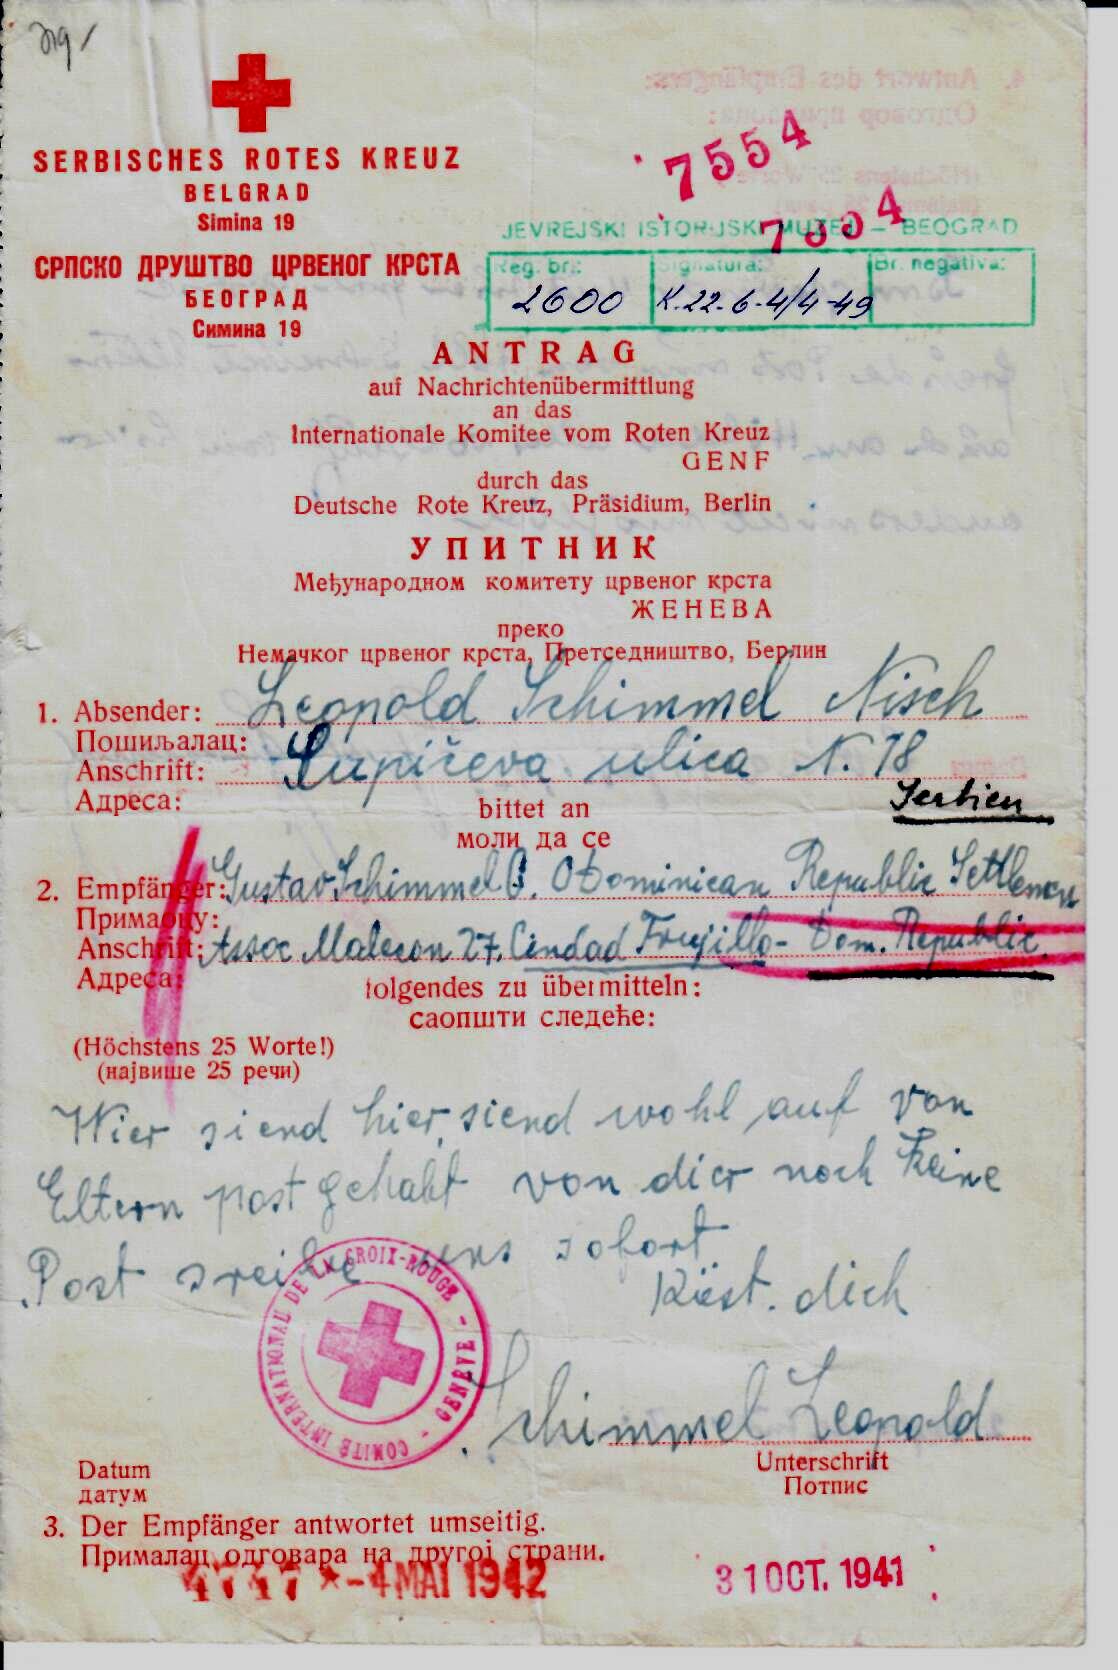 SERBISCHES ROTES KREUZ
BELGRAD
Simina 19
СРПСКО ДРУШТВО ЦРВЕНОГ КРСТА
БЕОГРАД
Симина 19
7554
7554
JEVREJSKI ISTORIJSKI MUZEJ – BEOGRAD
Reg. br.: Signatura: Br. negativa:
2600 K.22-6-4/4-49
ANTRAG
auf Nachrichtenübermittlung
an das
Internationale Komitee vom Roten Kreuz
GENF
durch das
Deutsche Rote Kreuz, Präsidium, Berlin
УПИТНИК
Међународном комитету црвеног крста
ЖЕНЕВА
преко
Немачког црвеног крста, Претседништво, Берлин
1. Absender: Leopold Schimmel Nisch
Пошиљалац:
Anschrift: Lupičeva ulica N. 78
Адреса:
Serbien
bittet an
моли да се
2. Empfänger: Gustav Schimmel Dominican Republic
Примаоцу:
Anschrift: Assoc Malecon 27. Ciudad Trujillo - Dom. Republic
Адреса:
folgendes zu übermitteln:
саопшти следеће:
(Höchstens 25 Worte!)
(највише 25 речи)
Wier siend hier, siend wohl auf von
Eltern post gehabt von dier noch keine
Post sreibe uns sofort
Küst. dich
COMITÉ INTERNATIONAL DE LA CROIX-ROUGE – GENÈVE –
Schimmel Leopold
Unterschrift
Потпис
Datum
датум
3. Der Empfänger antwortet umseitig.
Прималац одговара на другој страни.
4747 * - 4 MAI 1942
31 OCT. 1941